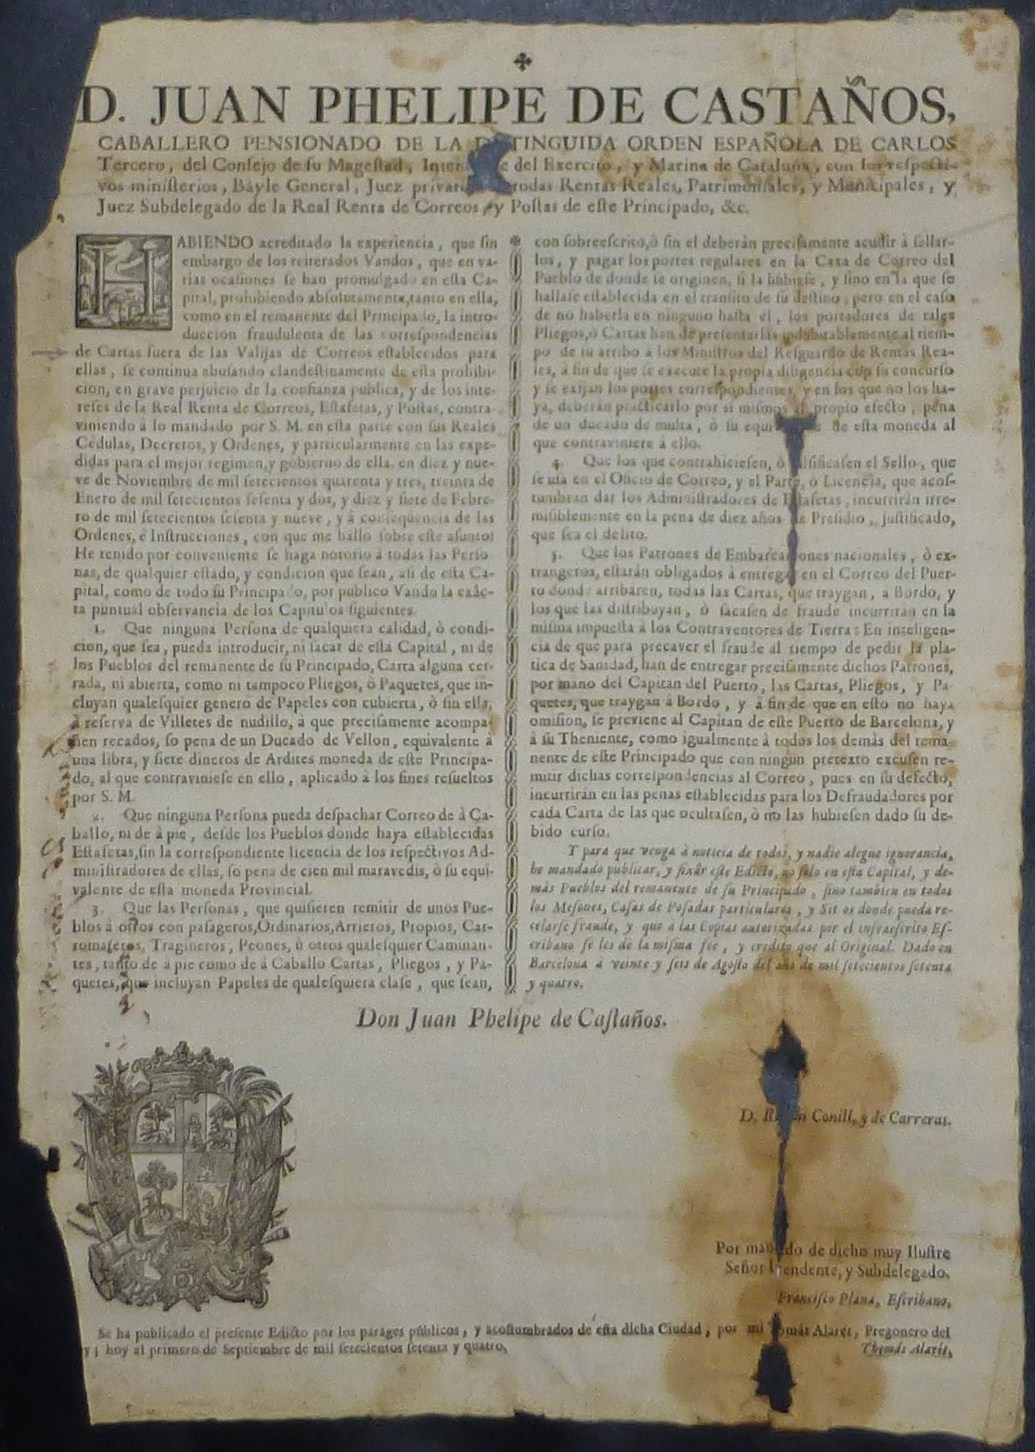 D. JUAN PHELIPE DE CASTAÑOS,
CABALLERO PENSIONADO DE LA DISTINGUIDA ORDEN ESPAÑOLA DE CARLOS
Tercero, del Consejo de su Magestad, del Exercito, y Marina de Cataluña, con los respecti-
vos ministerios, Bayle General, Juez todas Rentas Reales, Patrimoniales, y Municipales, y
Juez Subdelegado de la Real Renta de Correos, y Postas de este Principado, &c.
HABIENDO acreditado la experiencia, que sin
embargo de los reiterados Vandos, que en va-
rias ocasiones se han promulgado en esta Ca-
pital, prohibiendo absolutamente, tanto en ella,
como en el remanente del Principado, la intro-
duccion fraudulenta de las correspondencias
de Cartas fuera de las Valijas de Correos establecidos para
ellas, se continua abusando clandestinamente de esta prohibi-
cion, en grave perjuicio de la confianza publica, y de los inte-
reses de la Real Renta de Correos, Estafetas, y Postas, contra-
viniendo à lo mandado por S. M. en esta parte con sus Reales
Cedulas, Decretos, y Ordenes, y particularmente en las expe-
didas para el mejor regimen, y gobierno de ella, en diez y nue-
ve de Noviembre de mil setecientos quarenta y tres, treinta de
Enero de mil setecientos sesenta y dos, y diez y siete de Febre-
ro de mil setecientos sesenta y nueve, y à consequencia de las
Ordenes, è Instrucciones, con que me hallo sobre este asunto:
He tenido por conveniente se haga notorio à todas las Perso-
nas, de qualquier estado, y condicion que sean, asi de esta Ca-
pital, como de todo su Principado, por publico Vando la exâc-
ta puntual observancia de los Capitulos siguientes.
1. Que ninguna Persona de qualquiera calidad, ò condi-
cion, que sea, pueda introducir, ni sacar de esta Capital, ni de
los Pueblos del remanente de su Principado, Carta alguna cer-
rada, ni abierta, como ni tampoco Pliegos, ò Paquetes, que in-
cluyan qualesquier genero de Papeles con cubierta, ò sin ella,
à reserva de Villetes de nudillo, à que precisamente acompa-
ñen recados, so pena de un Ducado de Vellon, equivalente à
una libra, y siete dineros de Ardites moneda de este Principa-
do, al que contraviniese en ello, aplicado à los fines resueltos
por S. M.
2. Que ninguna Persona pueda despachar Correo de à Ca-
ballo, ni de à pie, desde los Pueblos donde haya establecidas
Estafetas, sin la correspondiente licencia de los respectivos Ad-
ministradores de ellas, so pena de cien mil maravedis, ò su equi-
valente de esta moneda Provincial.
3. Que las Personas, que quisieren remitir de unos Pue-
blos à otros con pasageros, Ordinarios, Arrieros, Propios, Car-
romateros, Tragineros, Peones, ù otros qualesquier Caminan-
tes, tanto de à pie como de à Caballo Cartas, Pliegos, y Pa-
quetes, que incluyan Papeles de qualesquiera clase, que sean,
con sobreescrito, ò sin el deberán precisamente acudir à sellar-
los, y pagar los portes regulares en la Casa de Correo del
Pueblo de donde se originen, si la hubiese, y sino en la que se
hallase establecida en el transito de su destino; pero en el caso
de no haberla en ninguno hasta el, los portadores de tales
Pliegos, ò Cartas han de presentarlas indubitablemente al tiem-
po de su arribo à los Ministros del Resguardo de Rentas Rea-
les, à fin de que se execute la propia diligencia con su concurso
y se exijan los portes correspondientes, y en los que no los ha-
ya, deberán practicarlo por si mismos al propio efecto; pena
de un ducado de multa, ò su de esta moneda al
que contraviniere à ello.
4. Que los que contrahiciesen, ò falsificasen el Sello, que
se usa en el Oficio de Correo, y el Parte, ò Licencia, que acos-
tumbran dar los Administradores de Estafetas, incurrirán irre-
misiblemente en la pena de diez años de Presidio, justificado,
que sea el delito.
5. Que los Patrones de Embarcaciones nacionales, ò ex-
trangeros, estarán obligados à entregar en el Correo del Puer-
to donde arribaren, todas las Cartas, que traygan, a Bordo, y
los que las distribuyan, ò sacasen de fraude incurrirán en la
misma impuesta à los Contraventores de Tierra: En inteligen-
cia de que para precaver el fraude al tiempo de pedir la pla-
tica de Sanidad, han de entregar precisamente dichos Patrones,
por mano del Capitan del Puerto, las Cartas, Pliegos, y Pa-
quetes, que traygan à Bordo, y à fin de que en esto no haya
omision, se previene al Capitan de este Puerto de Barcelona, y
à su Theniente, como igualmente à todos los demàs del rema-
nente de este Principado que con ningun pretexto excusen re-
mitir dichas correspondencias al Correo, pues en su defecto,
incurrirán en las penas establecidas para los Defraudadores por
cada Carta de las que ocultasen, ò no las hubiesen dado su de-
bido curso.
Y para que venga à noticia de todos, y nadie alegue ignorancia,
he mandado publicar, y fixar este Edicto, no solo en esta Capital, y de-
màs Pueblos del remanente de su Principado, sino tambien en todos
los Mesones, Casas de Posadas particulares, y Sitios donde pueda re-
celarse fraude, y que à las Copias autorizadas por el infraescrito Es-
cribano se les de la misma fee, y credito que al Original. Dado en
Barcelona à veinte y seis de Agosto del año de mil setecientos setenta
y quatro.
Don Juan Phelipe de Castaños.
D. Conill, y de Carreras.
Por mandado de dicho muy Ilustre
Señor Intendente, y Subdelegado.
Francisco Plana, Escribano.
Se ha publicado el presente Edicto por los parages públicos, y acostumbrados de esta dicha Ciudad, por mi Tomás Alarét, Pregonero del
y; hoy al primero de Septiembre de mil setecientos setenta y quatro.
Thomás Alarét.